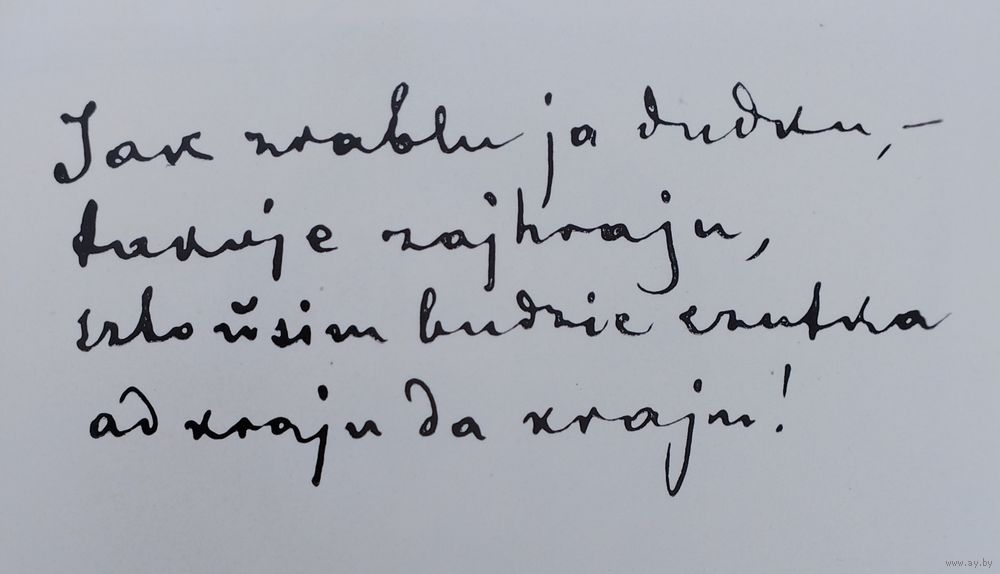 Jak zrablu ja dudku, –
takuje zajhraju,
szto ŭsim budzie czutka
ad kraju da kraju!
www.ay.by